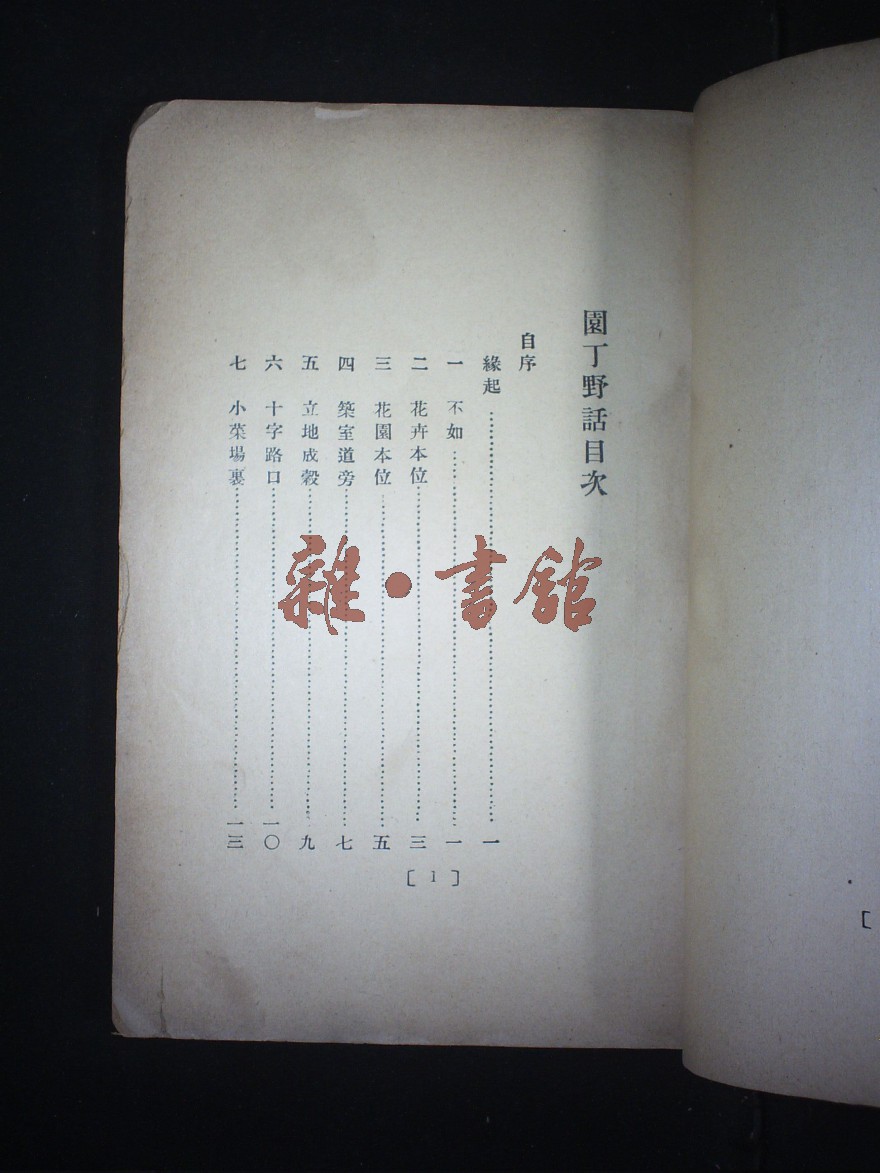 園丁野話目次
自序
緣起……一
一 不如……一
二 花卉本位……三
三 花園本位……五
四 築室道旁……七
五 立地成穀……九
六 十字路口……一〇
七 小菜場裏……一三
[1]
雜·書館
[